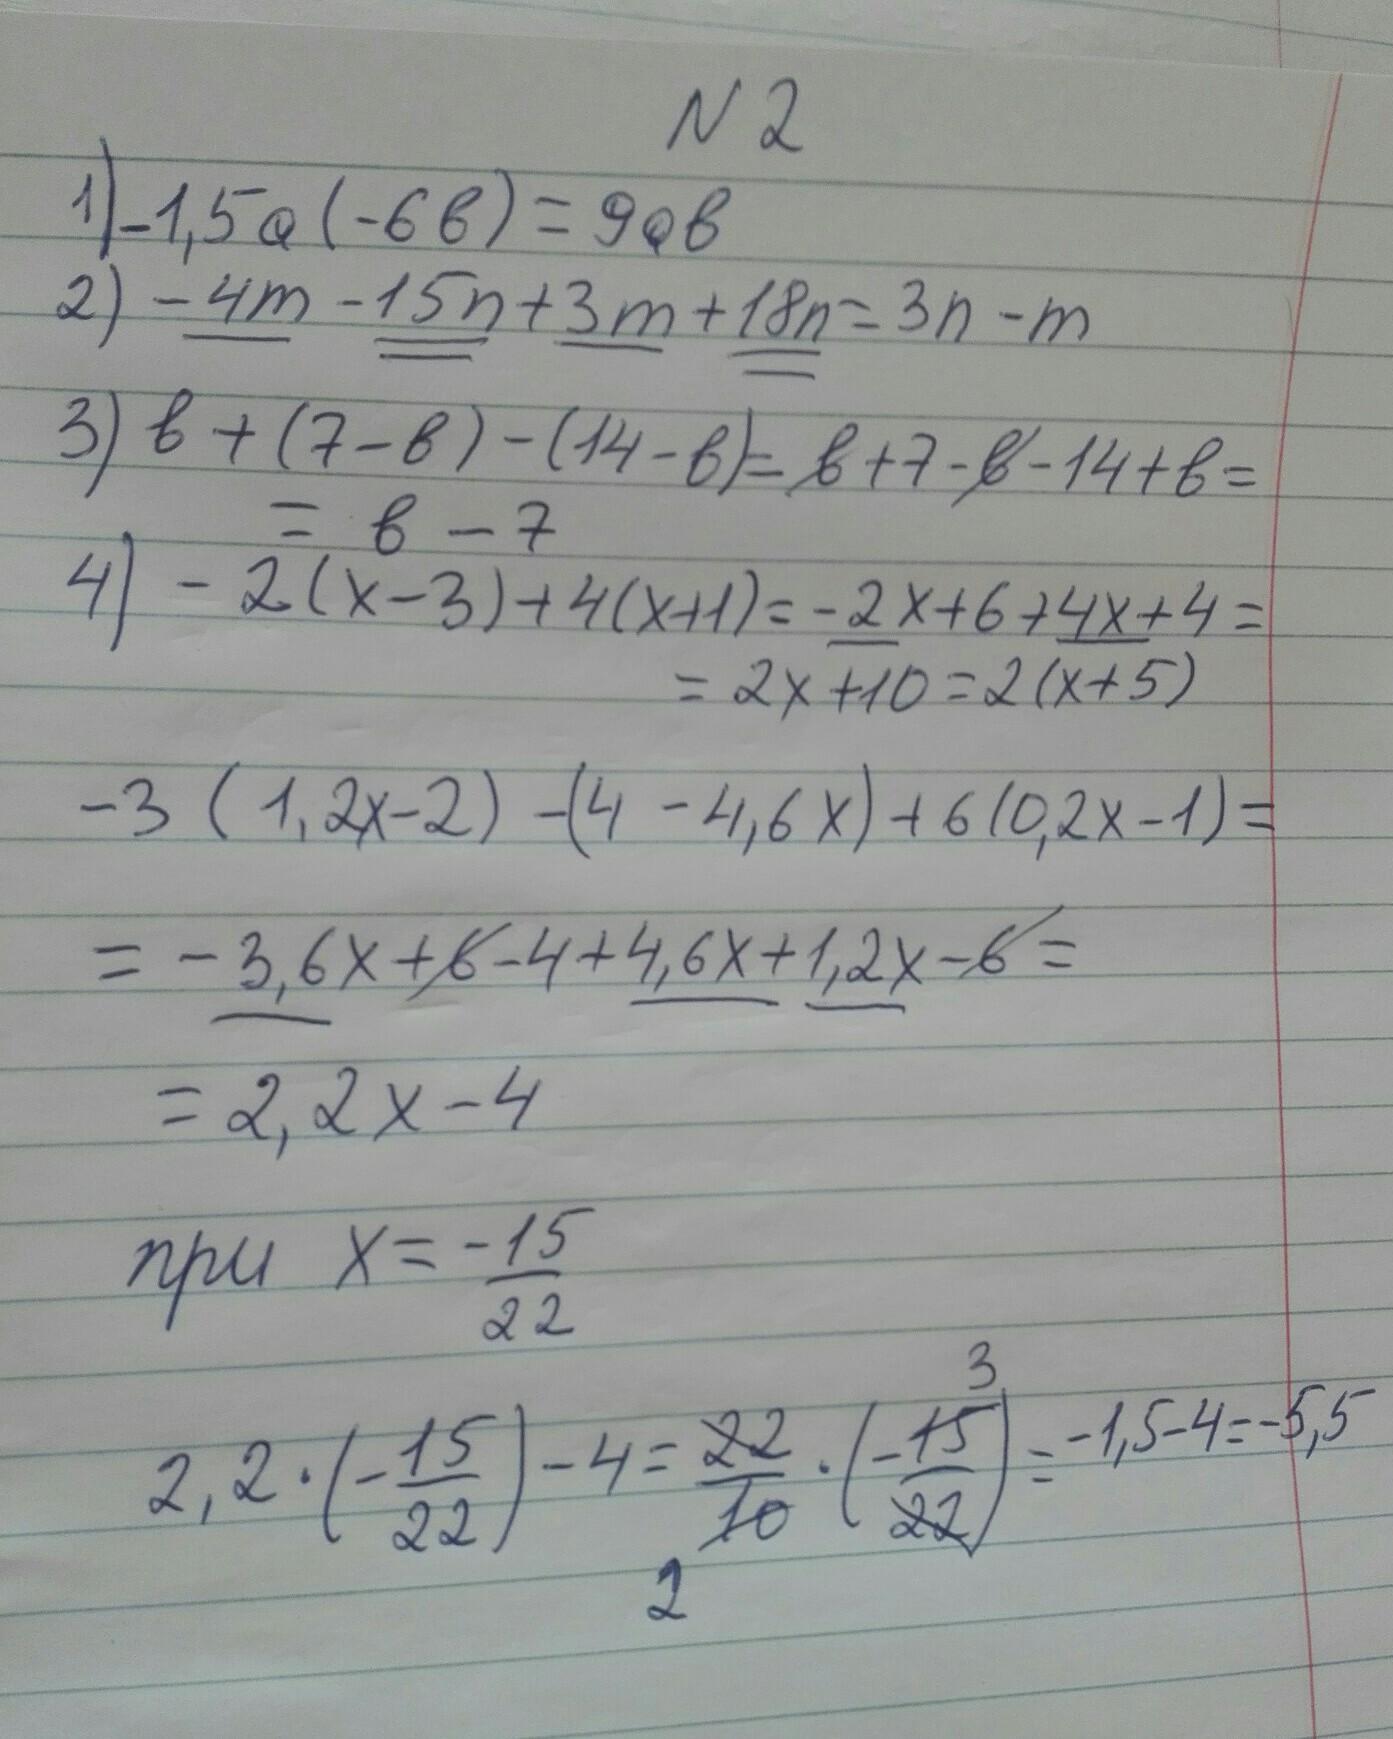 N 2
1) -1,5a(-6в) = 9ав
2) -4m - 15n + 3m + 18n = 3n - m
3) в + (7 - в) - (14 - в) = в + 7 - в - 14 + в =
= в - 7
4) - 2(x - 3) + 4(x + 1) = -2x + 6 + 4x + 4 =
= 2x + 10 = 2(x + 5)
-3 (1,2x - 2) - (4 - 4,6x) + 6(0,2x - 1) =
= -3,6x + 6 - 4 + 4,6x + 1,2x - 6 =
= 2,2x - 4
при x = -15/22
3
2,2 · (-15/22) - 4 = 22/10 · (-15/22) = -1,5 - 4 = -5,5
2